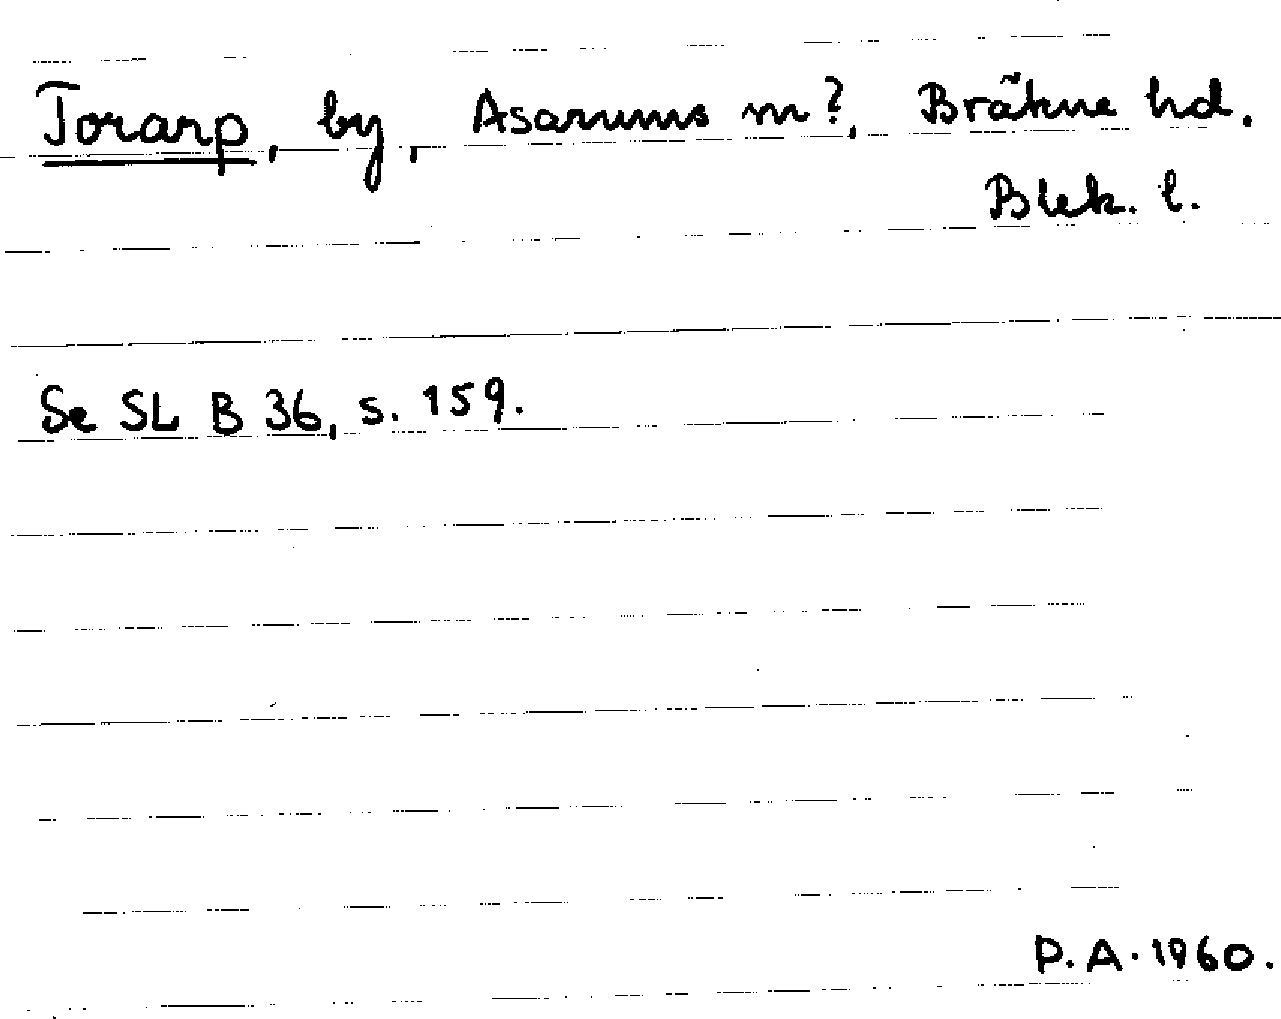 Torarp, by, Asarums m?, Bräkne hd.
Blek. l.
Se SL B 36, s. 159.
P.A. 1960.